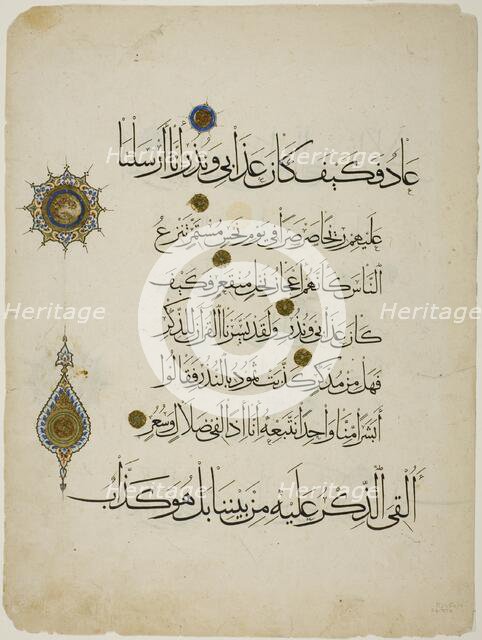 عاد فكيف كان عذابي ونذر إنا أرسلنا
عليهم ريحا صرصرا في يوم نحس مستمر تنزع
الناس كأنهم أعجاز نخل منقعر فكيف
كان عذابي ونذر ولقد يسرنا القرآن للذكر
فهل من مدكر كذبت ثمود بالنذر فقالوا
أبشرا منا واحدا نتبعه إنا إذا لفي ضلال وسعر
أألقي الذكر عليه من بيننا بل هو كذاب
Heritage Heritage Heritage
Heritage Heritage Heritage
Heritage Heritage Heritage